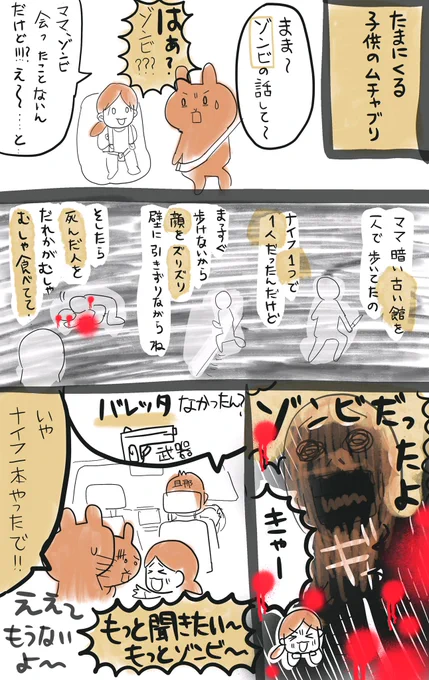 たまにくる
子供のムチャブリ
まま〜
ゾンビの話して〜
はぁ?
ゾンビ???
ママ、ゾンビ
会ったことないん
だけど!!!?え〜……と
ママ暗い古い館を
一人で歩いてたの
ナイフ1つで
1人だったんだけど
まっすぐ
歩けないから
顔をズリズリ
壁に引きずりながらね
そしたら
死んだ人を
だれかがむしゃ
むしゃ食べてて
ゾンビだったよ
ギャ
きゃー
バレッタなかったん?
武器
旦那
いや
ナイフ一本やったで!!
もっと聞きたい〜
もっとゾンビ〜
ええて
もうない
よ〜